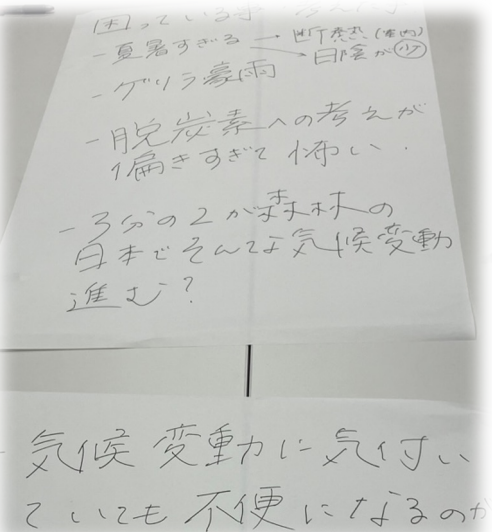 困っている
- 夏暑すぎる → 断熱(室内)
→ 日陰が少
- ゲリラ豪雨
- 脱炭素への考えが
偏きすぎて怖い.
- 3分の2が森林の
日本でそんな気候変動
進む?
- 気候変動に気付い
ていても不便になるのか